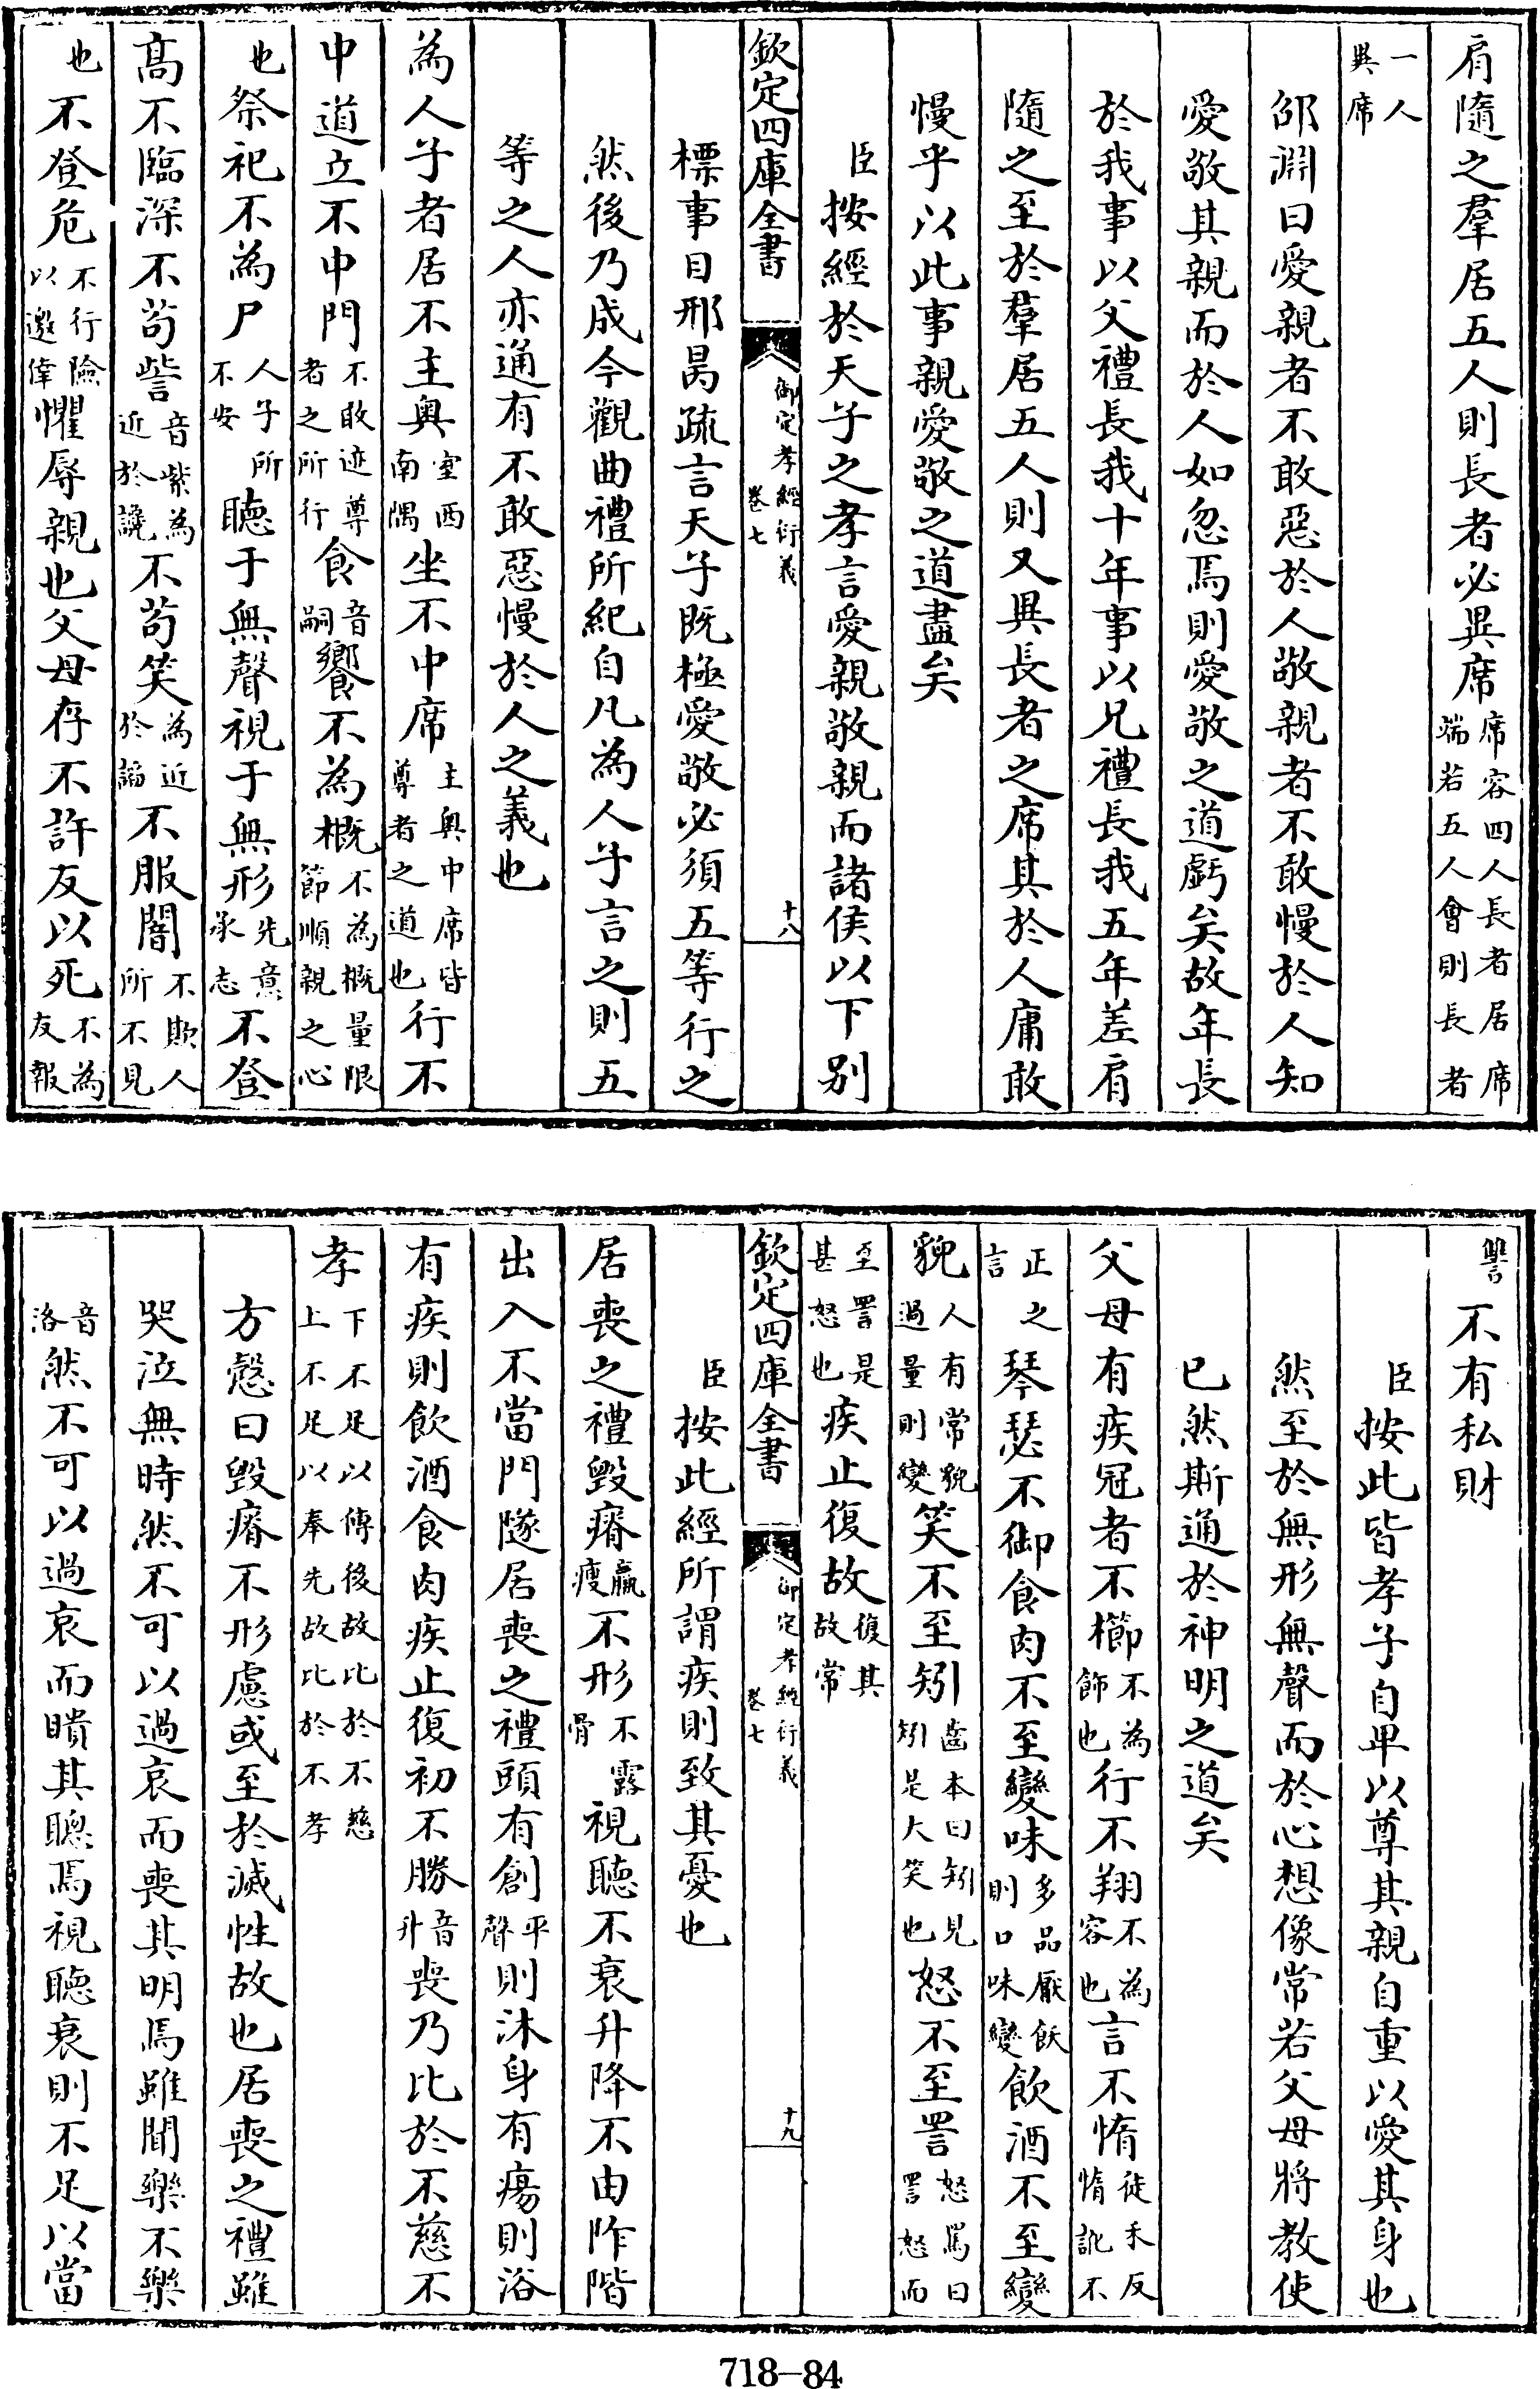 肩隨之羣居五人則長者必異席席容四人長者居席端若五人會則長者
一人異席
邵淵曰愛親者不敢惡於人敬親者不敢慢於人知
愛敬其親而於人如忽焉則愛敬之道虧矣故年長
於我事以父禮長我十年事以兄禮長我五年差肩
隨之至於羣居五人則又異長者之席其於人庸敢
慢乎以此事親愛敬之道盡矣
臣按經於天子之孝言愛親敬親而諸侯以下別
欽定四庫全書 御定孝經衍義 卷七 十八
標事目邢昺疏言天子既極愛敬必須五等行之
然後乃成今觀曲禮所紀自凡為人子言之則五
等之人亦通有不敢惡慢於人之義也
為人子者居不主奧室西南隅坐不中席主奧中席皆尊者之道也行不
中道立不中門不敢迹尊者之所行食音嗣饗不為槪不為槪量限節順親之心
也祭祀不為尸人子所不安聽于無聲視于無形先意承志不登
髙不臨深不苟訾音紫為近於讒不苟笑為近於謟不服闇不欺人所不見
也不登危不行險以邀倖懼辱親也父母存不許友以死不為友報
讐不有私財
臣按此皆孝子自卑以尊其親自重以愛其身也
然至於無形無聲而於心想像常若父母將教使
已然斯通於神明之道矣
父母有疾冠者不櫛不為飾也行不翔不為容也言不惰徒禾反惰訛不
正之言琴瑟不御食肉不至變味多品厭飫則口味變飲酒不至變
貌人有常貌過量則變笑不至矧齒本曰矧見矧是大笑也怒不至詈怒罵曰詈怒而
至詈是甚怒也疾止復故復其故常
欽定四庫全書 御定孝經衍義 卷七 十九
臣按此經所謂疾則致其憂也
居喪之禮毀瘠羸瘦不形不露骨視聽不衰升降不由阼階
出入不當門隧居喪之禮頭有創平聲則沐身有瘍則浴
有疾則飲酒食肉疾止復初不勝音升喪乃比於不慈不
孝下不足以傳後故比於不慈上不足以奉先故比於不孝
方慤曰毀瘠不形慮或至於滅性故也居喪之禮雖
哭泣無時然不可以過哀而喪其明焉雖聞樂不樂
音洛然不可以過哀而瞶其聰焉視聽衰則不足以當
718-84